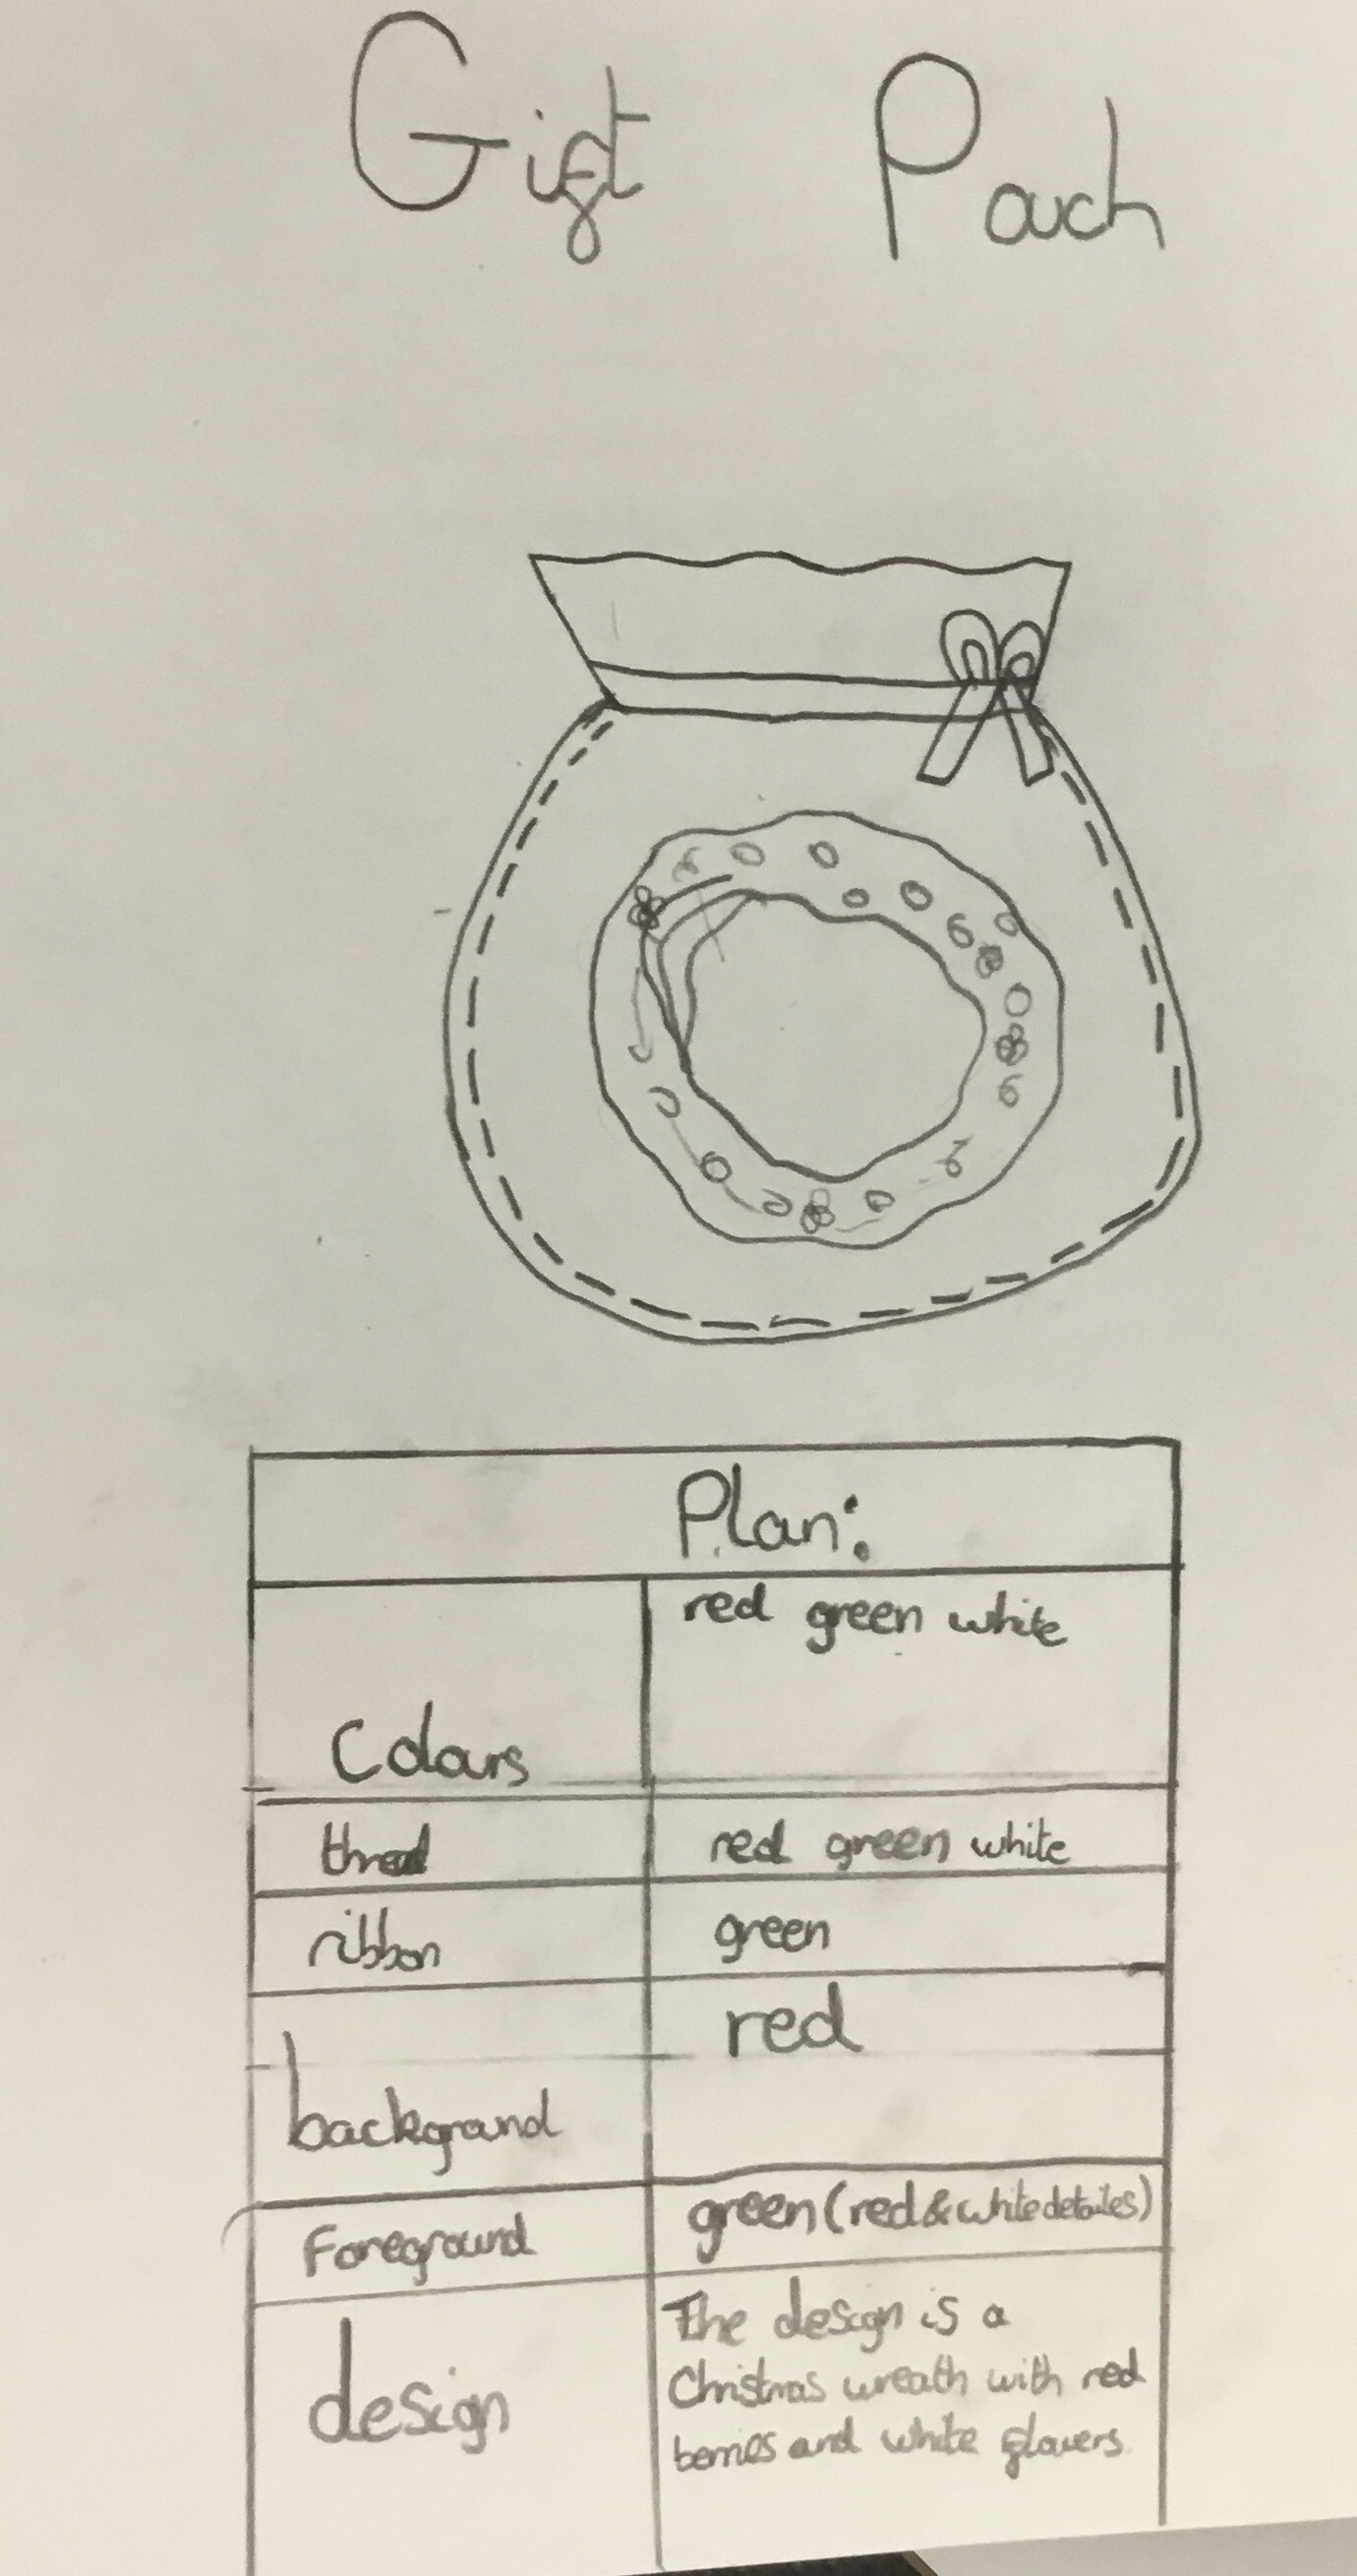 Gift Pouch
Plan:
Colours red green white
thread red green white
ribbon green
background red
Foreground green (red & white detailes)
design The design is a
Christmas wreath with red
berries and white flowers.